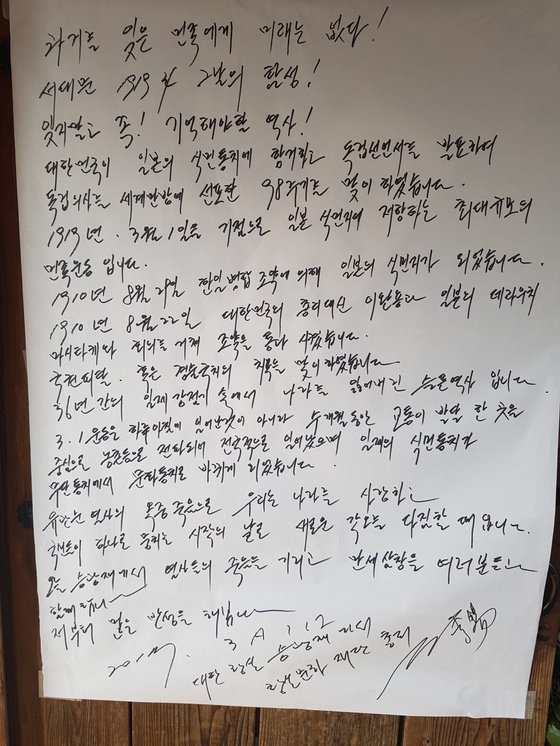 과거를 잊은 민족에게 미래는 없다!
서대문 1919年 그날의 함성!
잊지말고 꼭! 기억해야할 역사!
대한민국이 일본의 식민통치에 항거하고 독립선언서를 발표하여
독립의사를 세계만방에 선포한 98주기를 맞이 하였습니다.
1919년. 3월 1일을 기점으로 일본 식민지에 저항하는 최대규모의
민족운동 입니다.
1910년 8월 29일 한일병합 조약에 의해 일본의 식민지가 되었습니다.
1910년 8월 22일 대한민국의 총리대신 이완용과 일본의 데라우치
마사타케와 회의를 거쳐 조약을 통과 시켰습니다.
혹은 경술국치의 치욕을 맞이하였습니다.
36년간의 일제 강점기 속에서 나라를 잃어버린 슬픈역사 입니다.
3.1운동은 하루아침에 일어난것이 아니라 수개월동안 고통이 발달 한 곳을
중심으로 농촌등으로 전파되어 전국적으로 일어났으며 일제의 식민통치가
무단통치에서 문화통치로 바뀌게 되었습니다.
유관순 열사의 옥중 죽음으로 우리는 나라를 사랑하고
국민들이 하나로 뭉치는 시작의 날로 새로운 각오를 다짐할 때입니다.
오늘 승광재에서 열사들의 죽음을 기리고 만세삼창을 여러분들과
함께 하며
저부터 먼저 반성을 해봅니다
2017. 3. 1
대한황실 승광재 에서
황실문화 재단 총재